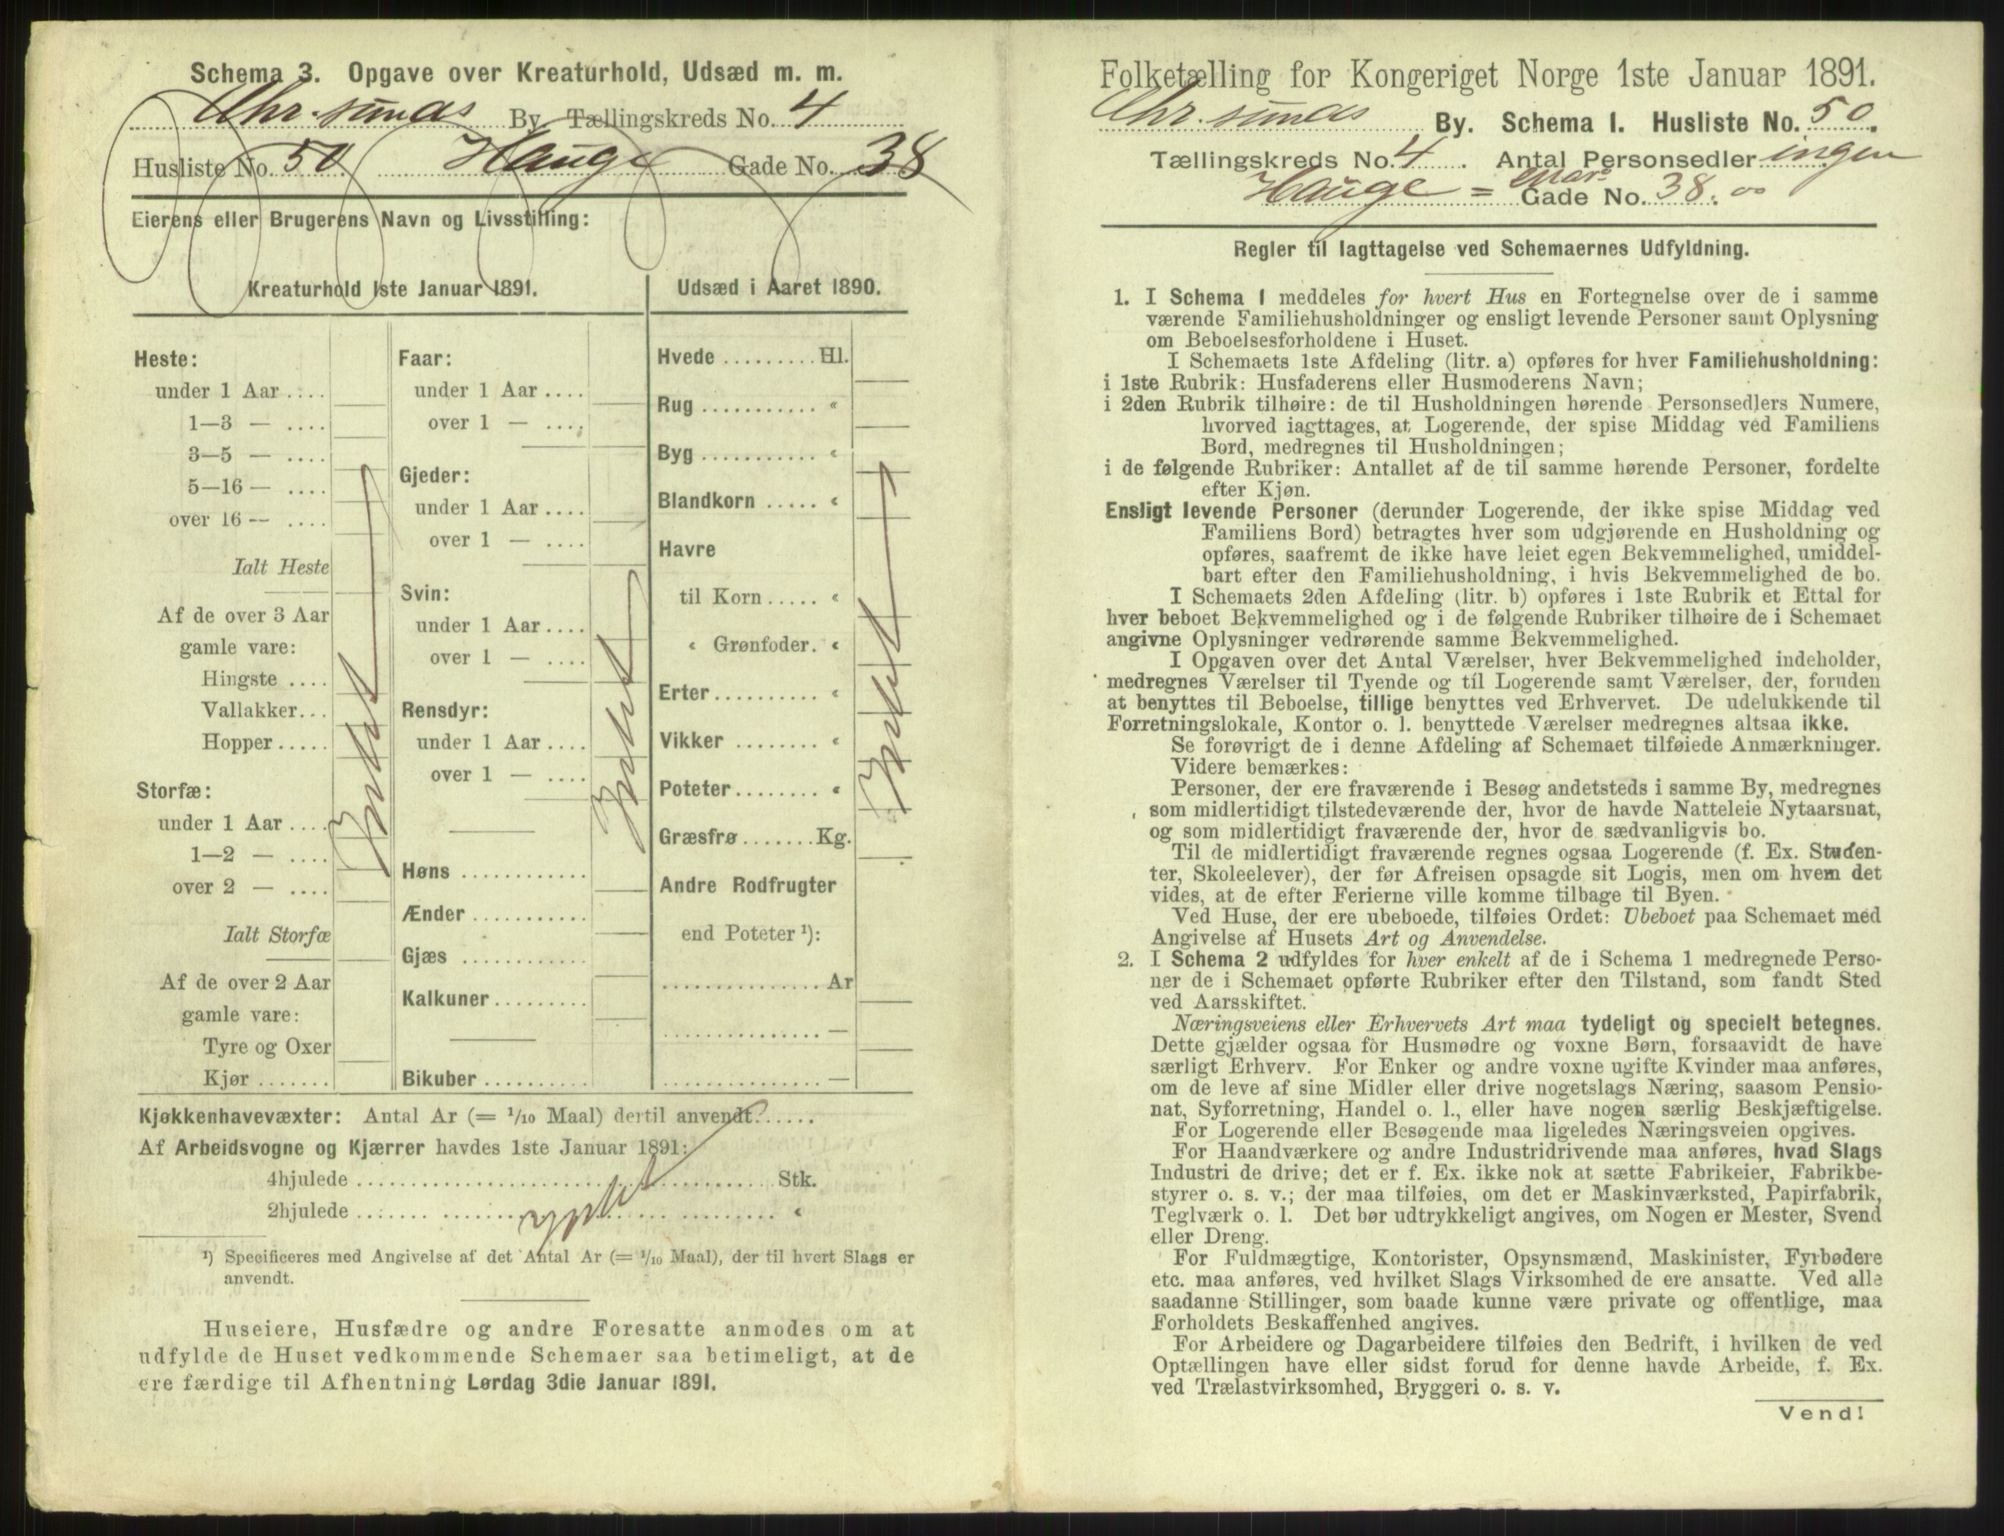 Schema 3. Opgave over Kreaturhold, Udsæd m. m.
Chr.sunds By Tællingskreds No. 4
Husliste No. 50. Hauge Gade No. 38
Eierens eller Brugerens Navn og Livsstilling:
Kreaturhold 1ste Januar 1891.
Heste:
under 1 Aar ....
1—3 — ....
3—5 — ....
5—16 — ....
over 16 — ....
Ialt Heste
Af de over 3 Aar
gamle vare:
Hingste ....
Vallakker...
Hopper .....
Storfæ:
under 1 Aar ....
1—2 — ....
over 2 — ....
Ialt Storfæ
Af de over 2 Aar
gamle vare:
Tyre og Oxer
Kjør .......
Intet
Faar:
under 1 Aar ....
over 1 — ....
Gjeder:
under 1 Aar ....
over 1 — ....
Svin:
under 1 Aar ....
over 1 — ....
Rensdyr:
under 1 Aar ....
over 1 — ....
Høns ............
Ænder ...........
Gjæs ............
Kalkuner.........
Bikuber..........
Intet
Udsæd i Aaret 1890.
Hvede .........Hl.
Rug ........... «
Byg ........... «
Blandkorn ..... «
Havre
til Korn ..... «
« Grønfoder. «
Erter......... «
Vikker ........ «
Poteter........ «
Græsfrø .......Kg.
Andre Rodfrugter
end Poteter ¹):
...............Ar
...............—
...............—
Intet
Kjøkkenhavevæxter: Antal Ar (= 1/10 Maal) dertil anvendt.......
Af Arbeidsvogne og Kjærrer havdes 1ste Januar 1891:
4hjulede ........................................ Stk.
2hjulede ........................................ «
Intet
¹) Specificeres med Angivelse af det Antal Ar (= 1/10 Maal), der til hvert Slags er
anvendt.
Huseiere, Husfædre og andre Foresatte anmodes om at
udfylde de Huset vedkommende Schemaer saa betimeligt, at de
ere færdige til Afhentning Lørdag 3die Januar 1891.
Folketælling for Kongeriget Norge 1ste Januar 1891.
Chr.sunds By. Schema 1. Husliste No. 50.
Tællingskreds No. 4. Antal Personsedler ingen
Hauge = Gade No. 38.
Regler til Iagttagelse ved Schemaernes Udfyldning.
1. I Schema 1 meddeles for hvert Hus en Fortegnelse over de i samme
værende Familiehusholdninger og ensligt levende Personer samt Oplysning
om Beboelsesforholdene i Huset.
I Schemaets 1ste Afdeling (litr. a) opføres for hver Familiehusholdning:
i 1ste Rubrik: Husfaderens eller Husmoderens Navn;
i 2den Rubrik tilhøire: de til Husholdningen hørende Personsedlers Numere,
hvorved iagttages, at Logerende, der spise Middag ved Familiens
Bord, medregnes til Husholdningen;
i de følgende Rubriker: Antallet af de til samme hørende Personer, fordelte
efter Kjøn.
Ensligt levende Personer (derunder Logerende, der ikke spise Middag ved
Familiens Bord) betragtes hver som udgjørende en Husholdning og
opføres, saafremt de ikke have leiet egen Bekvemmelighed, umiddel-
bart efter den Familiehusholdning, i hvis Bekvemmelighed de bo.
I Schemaets 2den Afdeling (litr. b) opføres i 1ste Rubrik et Ettal for
hver beboet Bekvemmelighed og i de følgende Rubriker tilhøire de i Schemaet
angivne Oplysninger vedrørende samme Bekvemmelighed.
I Opgaven over det Antal Værelser, hver Bekvemmelighed indeholder,
medregnes Værelser til Tyende og til Logerende samt Værelser, der, foruden
at benyttes til Beboelse, tillige benyttes ved Erhvervet. De udelukkende til
Forretningslokale, Kontor o. l. benyttede Værelser medregnes altsaa ikke.
Se forøvrigt de i denne Afdeling af Schemaet tilføiede Anmærkninger.
Videre bemærkes:
Personer, der ere fraværende i Besøg andetsteds i samme By, medregnes
som midlertidigt tilstedeværende der, hvor de havde Natteleie Nytaarsnat,
og som midlertidigt fraværende der, hvor de sædvanligvis bo.
Til de midlertidigt fraværende regnes ogsaa Logerende (f. Ex. Studen-
ter, Skoleelever), der før Afreisen opsagde sit Logis, men om hvem det
vides, at de efter Ferierne ville komme tilbage til Byen.
Ved Huse, der ere ubeboede, tilføies Ordet: Ubeboet paa Schemaet med
Angivelse af Husets Art og Anvendelse.
2. I Schema 2 udfyldes for hver enkelt af de i Schema 1 medregnede Perso-
ner de i Schemaet opførte Rubriker efter den Tilstand, som fandt Sted
ved Aarsskiftet.
Næringsveiens eller Erhvervets Art maa tydeligt og specielt betegnes.
Dette gjælder ogsaa for Husmødre og voxne Børn, forsaavidt de have
særligt Erhverv. For Enker og andre voxne ugifte Kvinder maa anføres,
om de leve af sine Midler eller drive nogetslags Næring, saasom Pensio-
nat, Syforretning, Handel o. l., eller have nogen særlig Beskjæftigelse.
For Logerende eller Besøgende maa ligeledes Næringsveien opgives.
For Haandværkere og andre Industridrivende maa anføres, hvad Slags
Industri de drive; det er f. Ex. ikke nok at sætte Fabrikeier, Fabrikbe-
styrer o. s. v.; der maa tilføies, om det er Maskinværksted, Papirfabrik,
Teglværk o. l. Det bør udtrykkeligt angives, om Nogen er Mester, Svend
eller Dreng.
For Fuldmægtige, Kontorister, Opsynsmænd, Maskinister, Fyrbødere
etc. maa anføres, ved hvilket Slags Virksomhed de ere ansatte. Ved alle
saadanne Stillinger, som baade kunne være private og offentlige, maa
Forholdets Beskaffenhed angives.
For Arbeidere og Dagarbeidere tilføies den Bedrift, i hvilken de ved
Optællingen have eller sidst forud for denne havde Arbeide, f. Ex.
ved Trælastvirksomhed, Bryggeri o. s. v.
Vend!